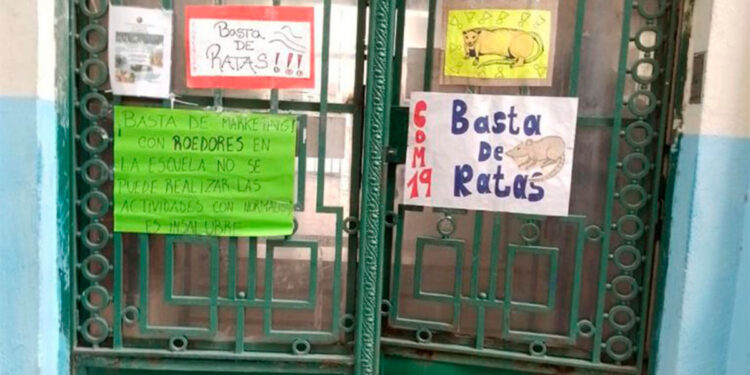 Basta
DE
RATAS!!!
¡BASTA DE MARKETING!
CON ROEDORES EN
LA ESCUELA NO SE
PUEDE REALIZAR LAS
ACTIVIDADES CON NORMALIDAD
ES INSALUBRE
COM 19
Basta
De
Ratas